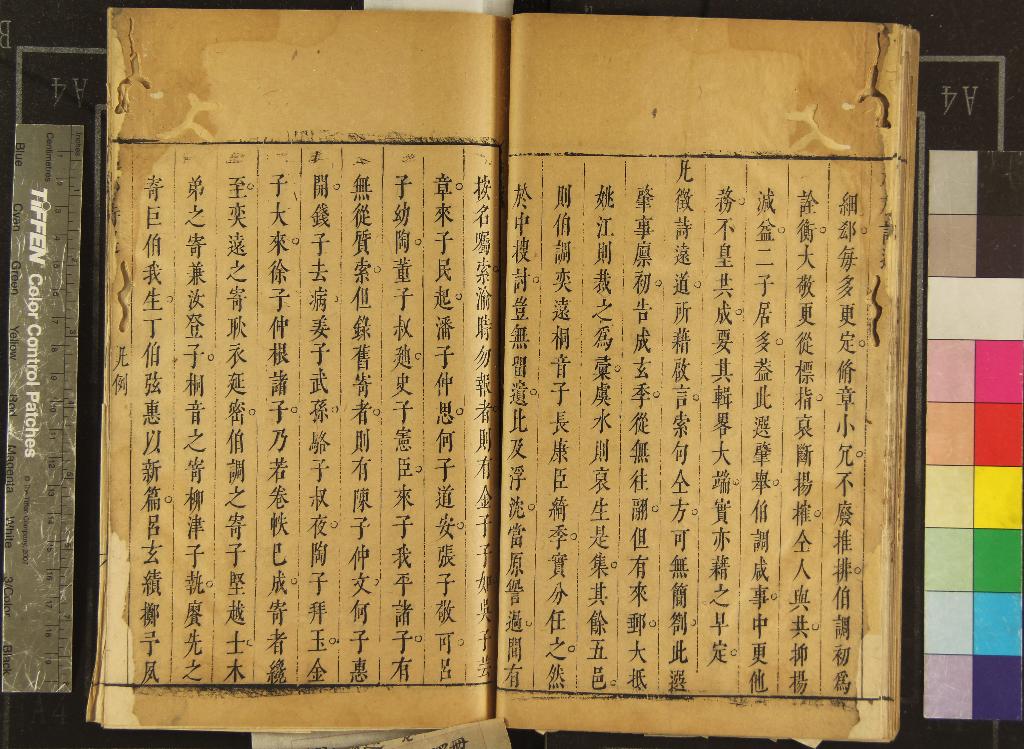 細郄每多更定脩章小冗不廢推排伯調初爲
詮衡大敬更從標指哀斷揚搉仝人與共抑揚
減益二子居多葢此選肈舉伯調成事中更他
務不皇共成要其輯畧大端實亦藉之早定
凡徵詩遠道所藉啟言索句仝方可無簡劄此選
肈事廪初告成玄季從無往謝但有來郵大抵
姚江則裁之爲稾虞水則哀生是集其餘五邑
則伯調奕遠桐音子長康臣綺季實分任之然
於中搜討豈無畱遺比及浮沈當原譽過間有
按名囑索渝時勿報者則有金子
章來子民起潘子仲思何子道安張子敬可呂
子幼陶董子叔廸史子憲臣來子我平諸子有
無從質索但錄舊寄者則有陳子仲文何子惠
開錢子去病婁子武孫駱子叔夜陶子拜玉金
子大來徐子仲根諸子乃若卷帙已成寄者纔
至奕遠之寄耿永延密伯調之寄子堅越士木
弟之寄兼汝登子桐音之寄柳津子執賡先之
寄巨伯我生丁伯弦惠以新篇呂玄績擲予夙
凡例
TIFFEN Color Control Patches
Centimetres
Inches
Blue
Cyan
Green
Yellow
Red
Magenta
White
3/Color
Black
A4
A4
A4
B